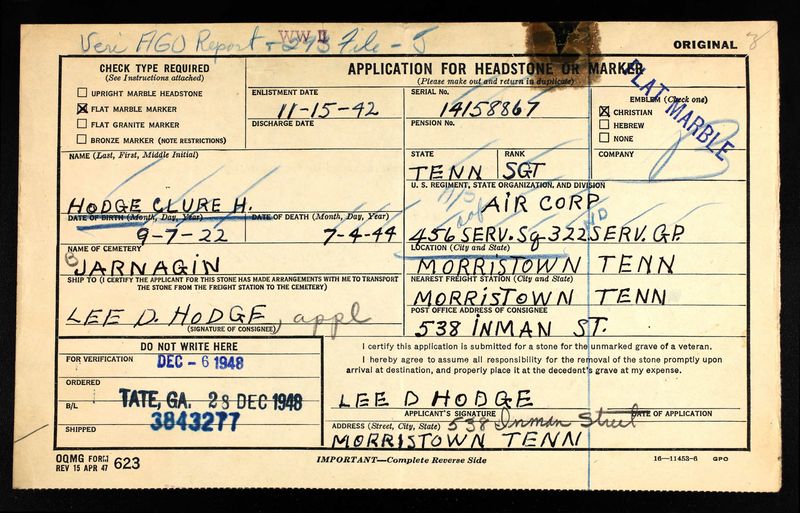 Veri AGO Report - 273 File - J
WW II
ORIGINAL
CHECK TYPE REQUIRED
(See Instructions attached)
UPRIGHT MARBLE HEADSTONE
FLAT MARBLE MARKER
FLAT GRANITE MARKER
BRONZE MARKER (NOTE RESTRICTIONS)
APPLICATION FOR HEADSTONE OR MARKER
(Please make out and return in duplicate)
ENLISTMENT DATE
11-15-42
DISCHARGE DATE
SERIAL No.
14158867
PENSION No.
EMBLEM (Check one)
CHRISTIAN
HEBREW
NONE
FLAT MARBLE
NAME (Last, First, Middle Initial)
HODGE CLURE H.
STATE
TENN
RANK
SGT
COMPANY
U. S. REGIMENT, STATE ORGANIZATION, AND DIVISION
AIR CORP
456 SERV. Sq-322 SERV. GP.
DATE OF BIRTH (Month, Day, Year)
9-7-22
DATE OF DEATH (Month, Day, Year)
7-4-44
NAME OF CEMETERY
JARNAGIN
LOCATION (City and State)
MORRISTOWN TENN
SHIP TO (I CERTIFY THE APPLICANT FOR THIS STONE HAS MADE ARRANGEMENTS WITH ME TO TRANSPORT
THE STONE FROM THE FREIGHT STATION TO THE CEMETERY)
LEE D. HODGE, appl
(SIGNATURE OF CONSIGNEE)
NEAREST FREIGHT STATION (City and State)
MORRISTOWN TENN
POST OFFICE ADDRESS OF CONSIGNEE
538 INMAN ST.
DO NOT WRITE HERE
FOR VERIFICATION
DEC -6 1948
ORDERED
B/L
TATE, GA. 28 DEC 1948
3843277
SHIPPED
I certify this application is submitted for a stone for the unmarked grave of a veteran.
I hereby agree to assume all responsibility for the removal of the stone promptly upon
arrival at destination, and properly place it at the decedent's grave at my expense.
LEE D HODGE
APPLICANT'S SIGNATURE
DATE OF APPLICATION
ADDRESS (Street, City, State) 538 Inman Street
MORRISTOWN TENN
OQMG FORM
REV 15 APR 47
623
IMPORTANT—Complete Reverse Side
16—11453-6 GPO